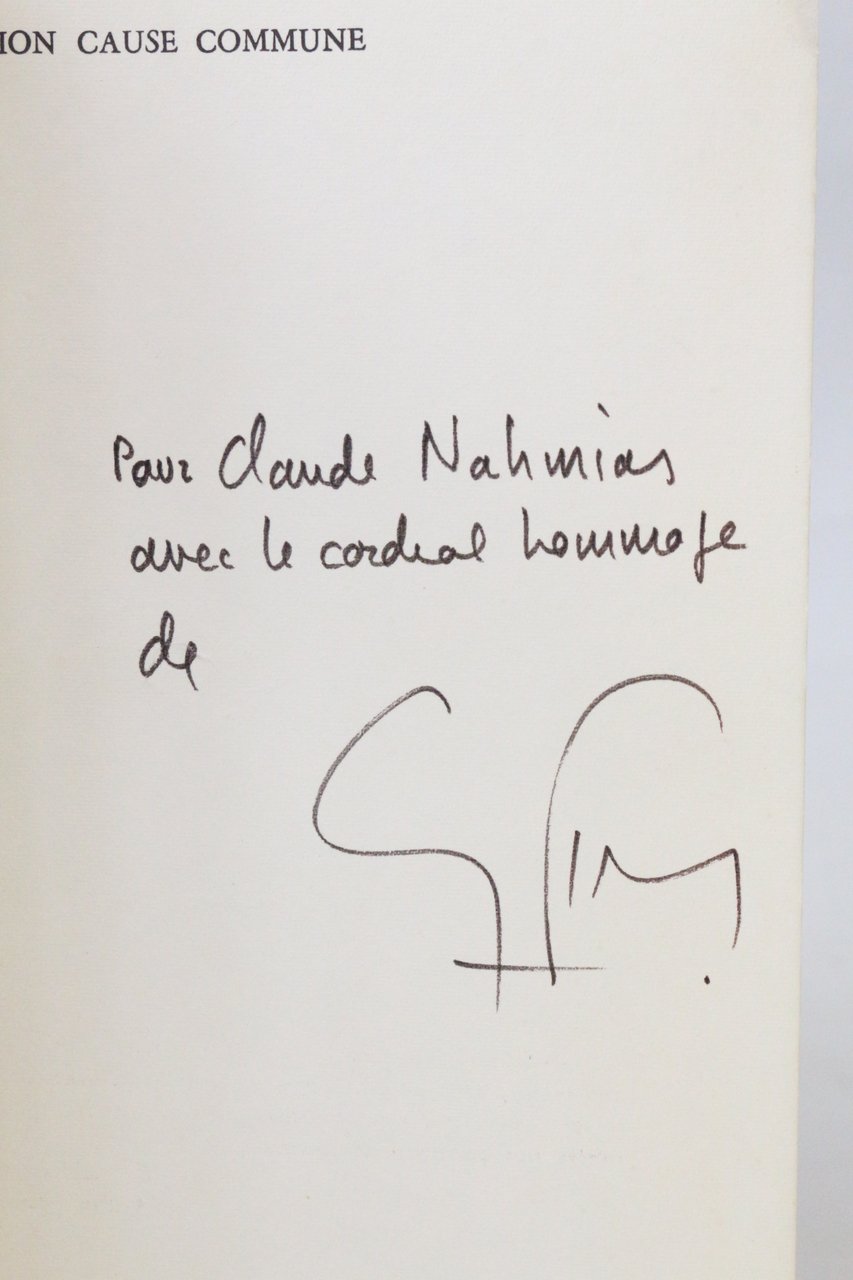 ION CAUSE COMMUNE
Pour Claude Nahmias
avec le cordial hommage
de